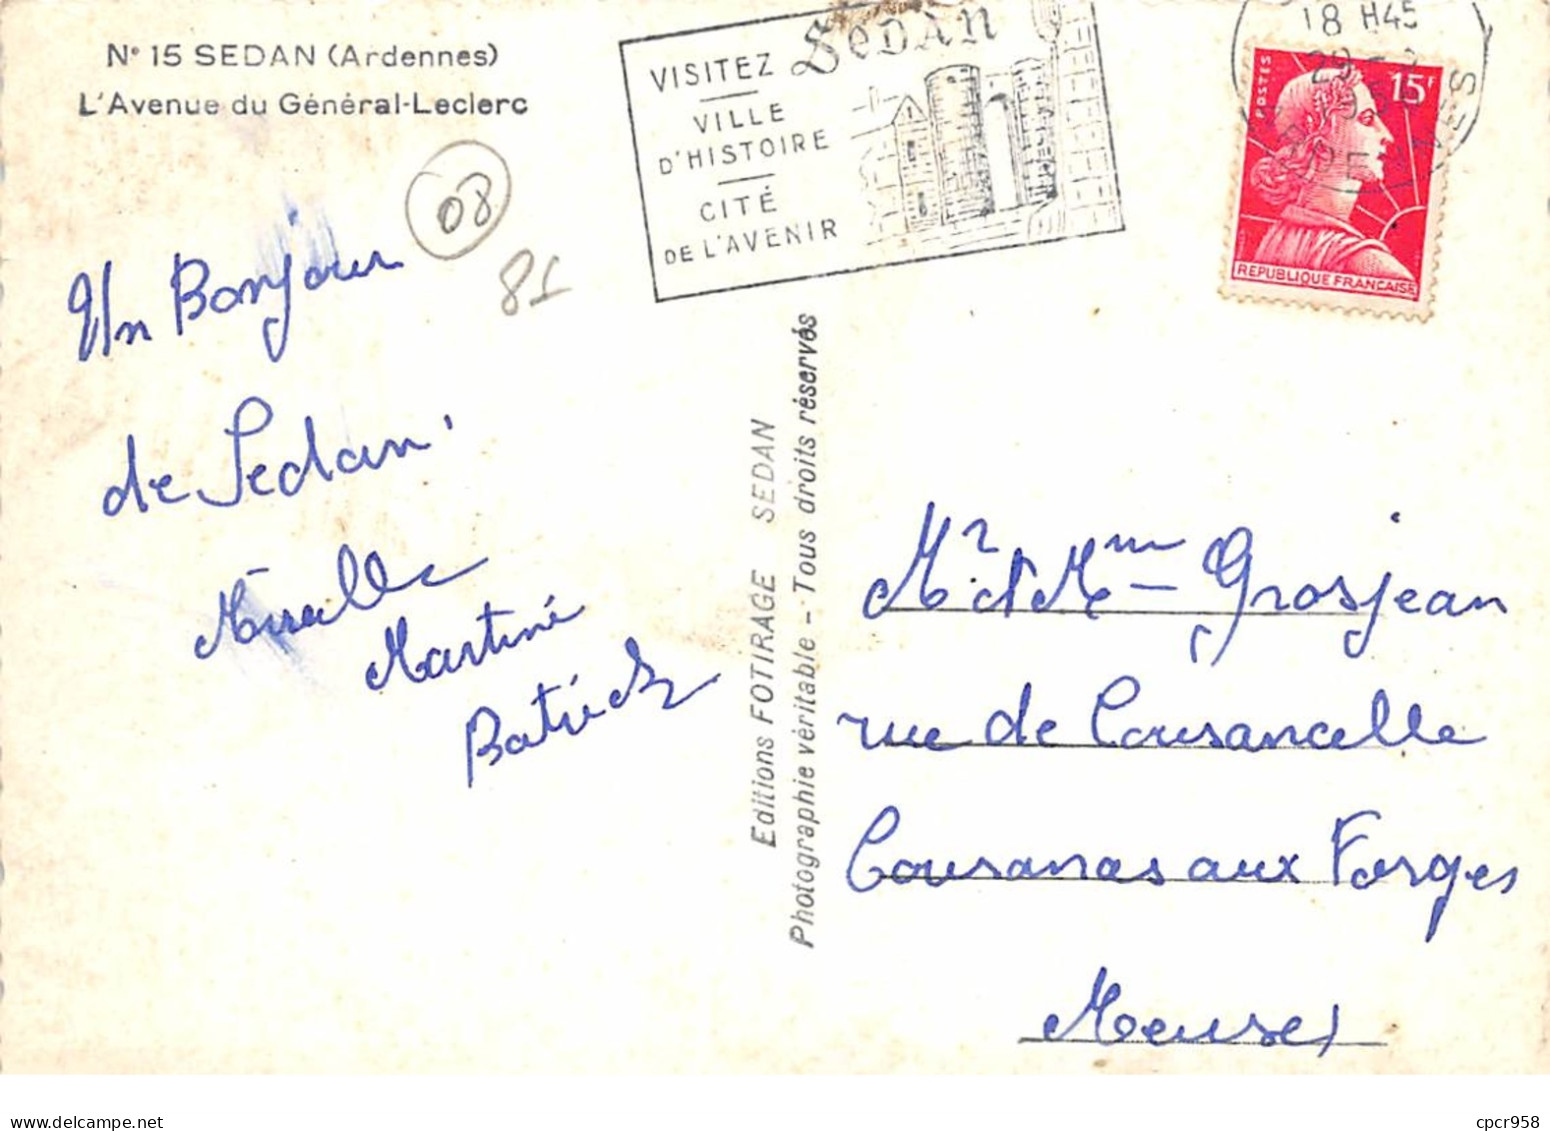 N° 15 SEDAN (Ardennes)
L'Avenue du Général-Leclerc
08
81
VISITEZ SEDAN
VILLE
D'HISTOIRE
CITÉ
DE L'AVENIR
18 H45
POSTES
15F
REPUBLIQUE FRANÇAISE
Un Bonjour
de Sedan
Mireille
Martine
Patrick
Editions FOTIRAGE SEDAN
Photographie véritable - Tous droits réservés
Mr et Mme Grosjean
rue de Cousancelle
Cousances aux Forges
Meuse
cpcr958